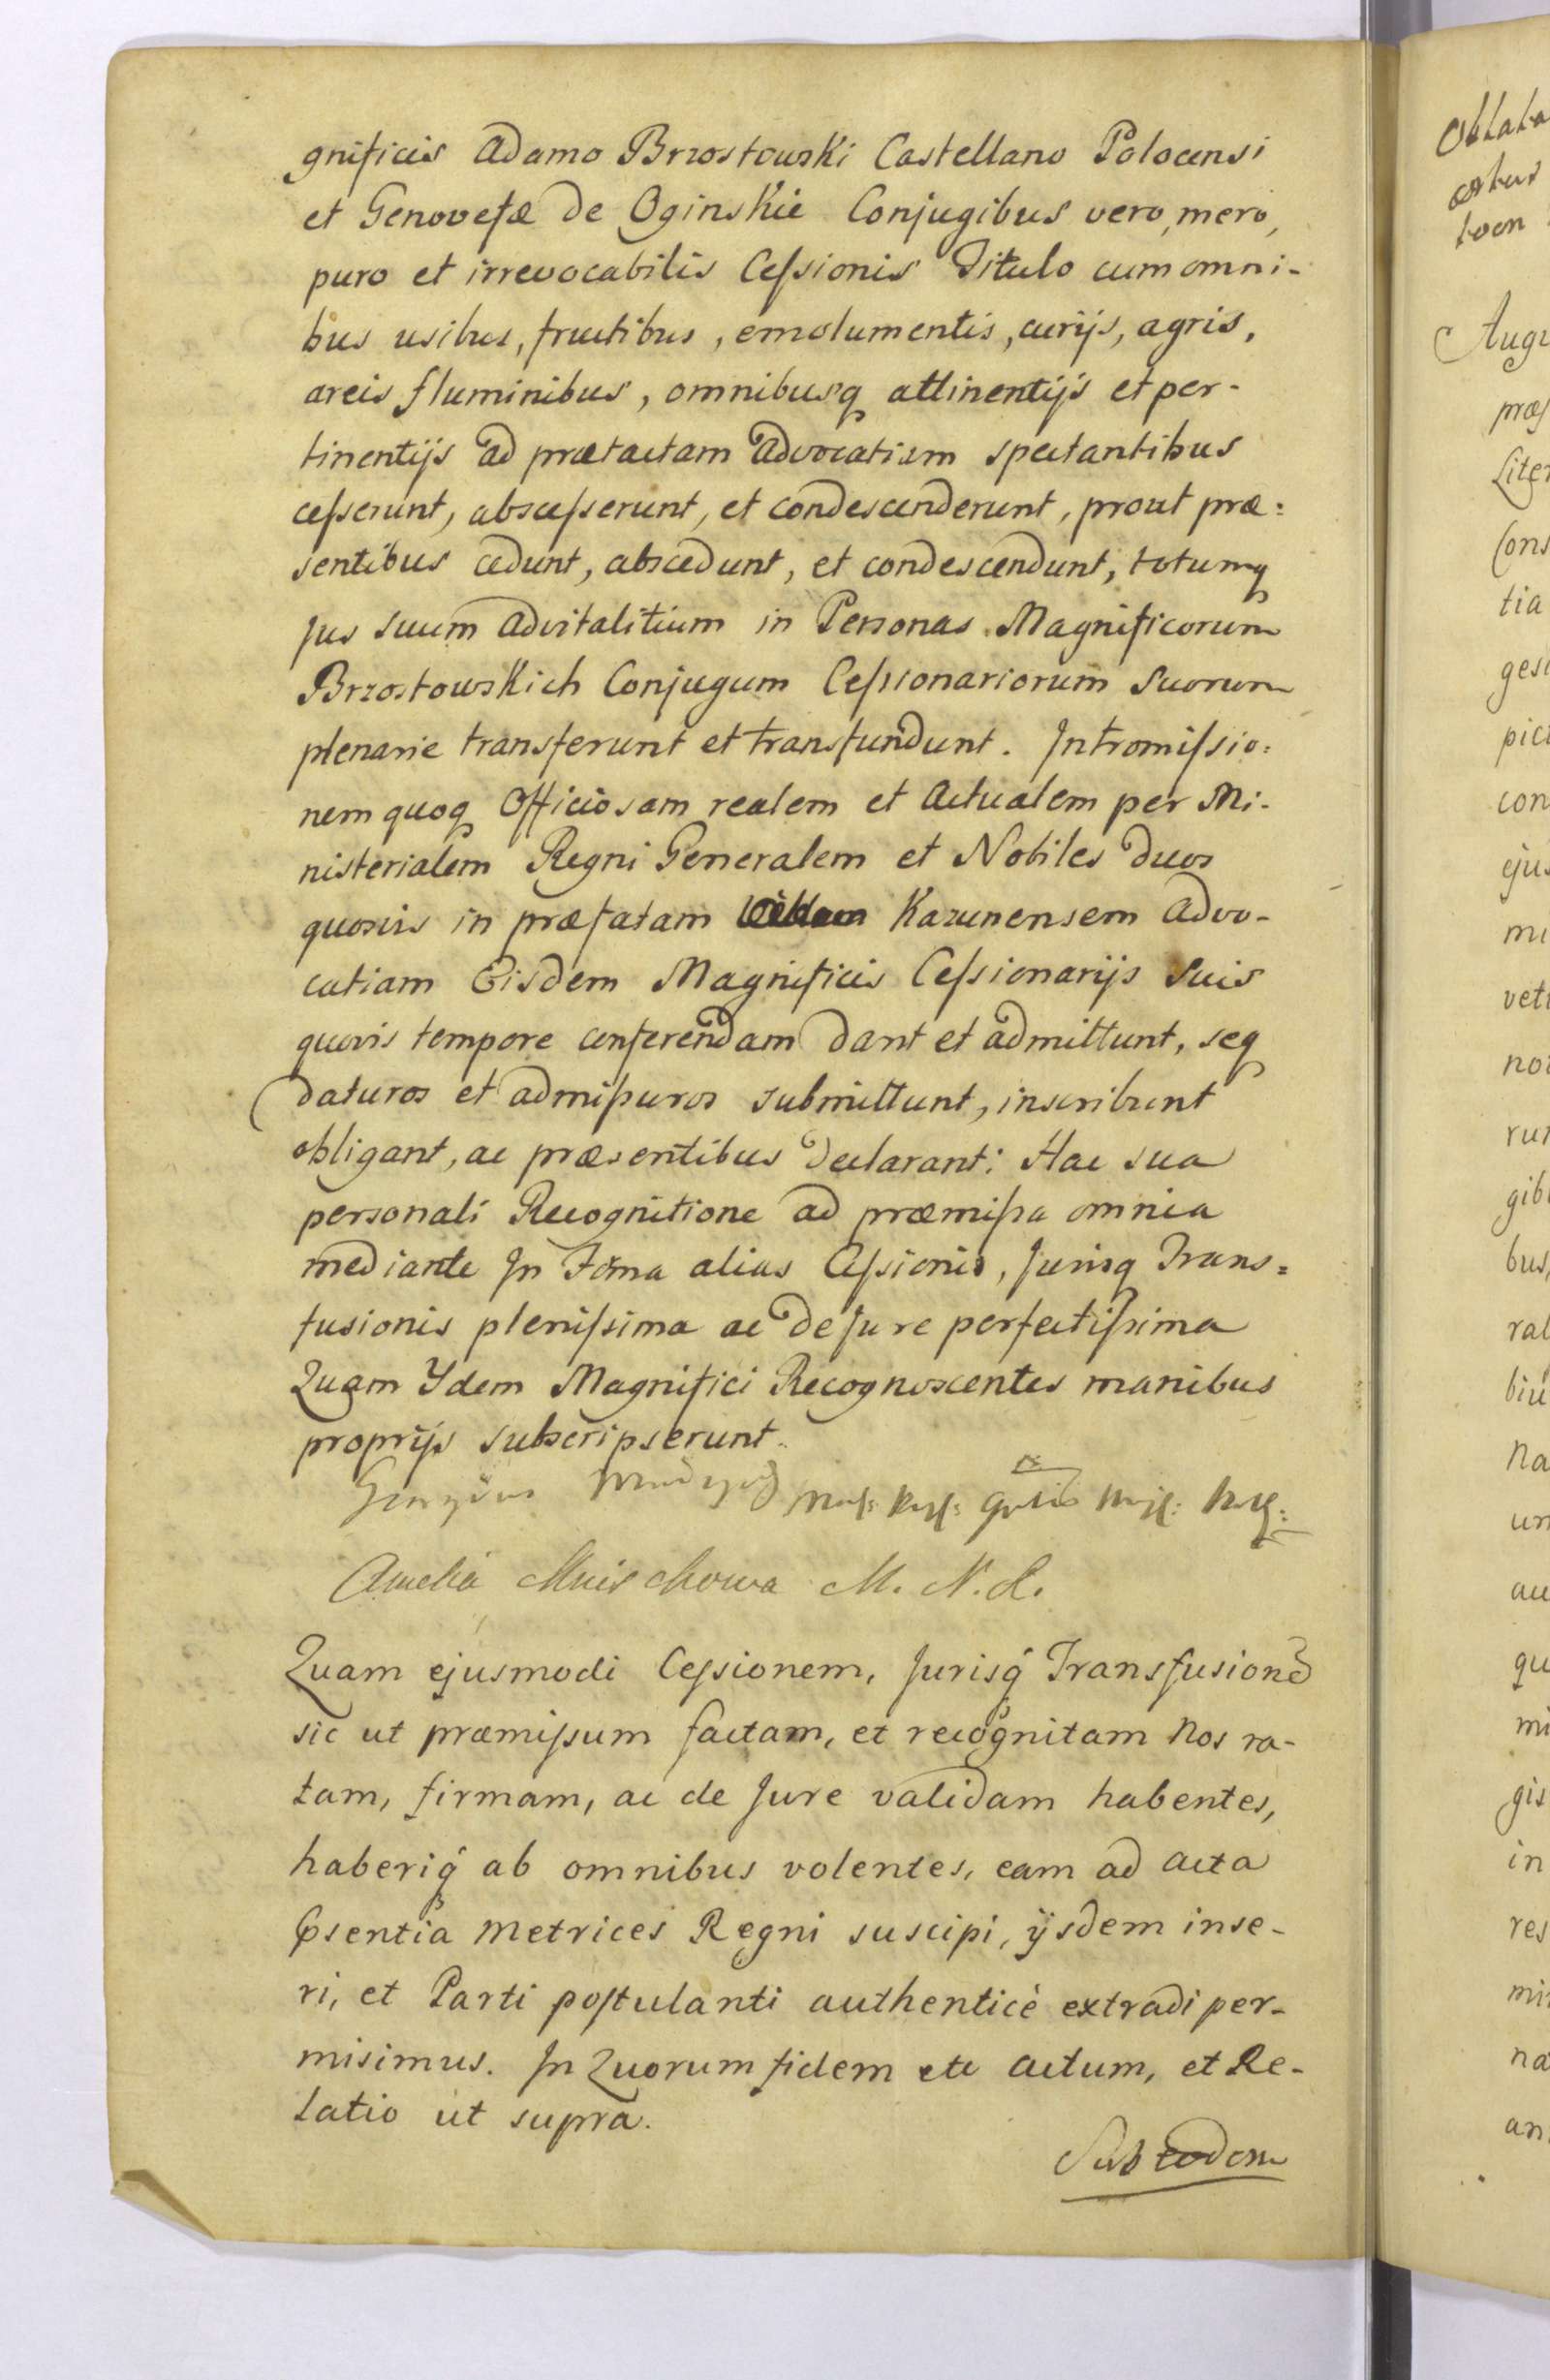 gnificis Adamo Brzostowski Castellano Polocensi
et Genovefæ de Oginskie Conjugibus vero, mero,
puro et irrevocabilis Cessionis Titulo cum omni-
bus usibus, fructibus, emolumentis, curijs, agris,
areis fluminibus, omnibusq attinentijs et per-
tinentijs ad prætactam Advocatiam spectantibus
cesserunt, abscesserunt, et condescenderunt, prout præ:
sentibus cedunt, abscedunt, et condescendunt, totumq
Jus suum advitalitium in Personas Magnificorum
Brzostowskich Conjugum Cessionariorum Suorum
plenarie transferunt et transfundunt. Intromissio:
nem quoq Officiosam realem et Actualem per Mi-
nisterialem Regni Generalem et Nobiles duos
quosvis in præfatam Kazunensem Advo-
catiam Eisdem Magnificis Cessionarijs Suis
quovis tempore conferendam dant et admittunt, seq
daturos et admissuros submittunt, inscribunt
obligant, ac præsentibus declarant: Hac sua
personali Recognitione ad præmissa omnia
mediante In Foma alias Cessionis, Jurisq Trans=
fusionis plenissima ac de Jure perfectissima
Quam Ydem Magnifici Recognoscentes manibus
proprijs subscripserunt.
Amelia Mnischowa M. N. K.
Quam ejusmodi Cessionem, Jurisq Transfusione
sic ut præmissum factam, et recognitam Nos ra-
tam, firmam, ac de Jure validam habentes,
haberiq ab omnibus volentes, eam ad Acta
Psentia Metrices Regni suscipi, ijsdem inse-
ri, et Parti postulanti authenticè extradi per-
misimus. In Quorum fidem etc Actum, et Re-
latio ut supra.
Sub eodem
Oblata
Augu
præs
Liter
Cons
tia
gesi
pici
con
ejus
mi
veti
not
rum
gibi
bus,
ral
biu
na
un
au
qu
mi
gis
in
res
min
na
an